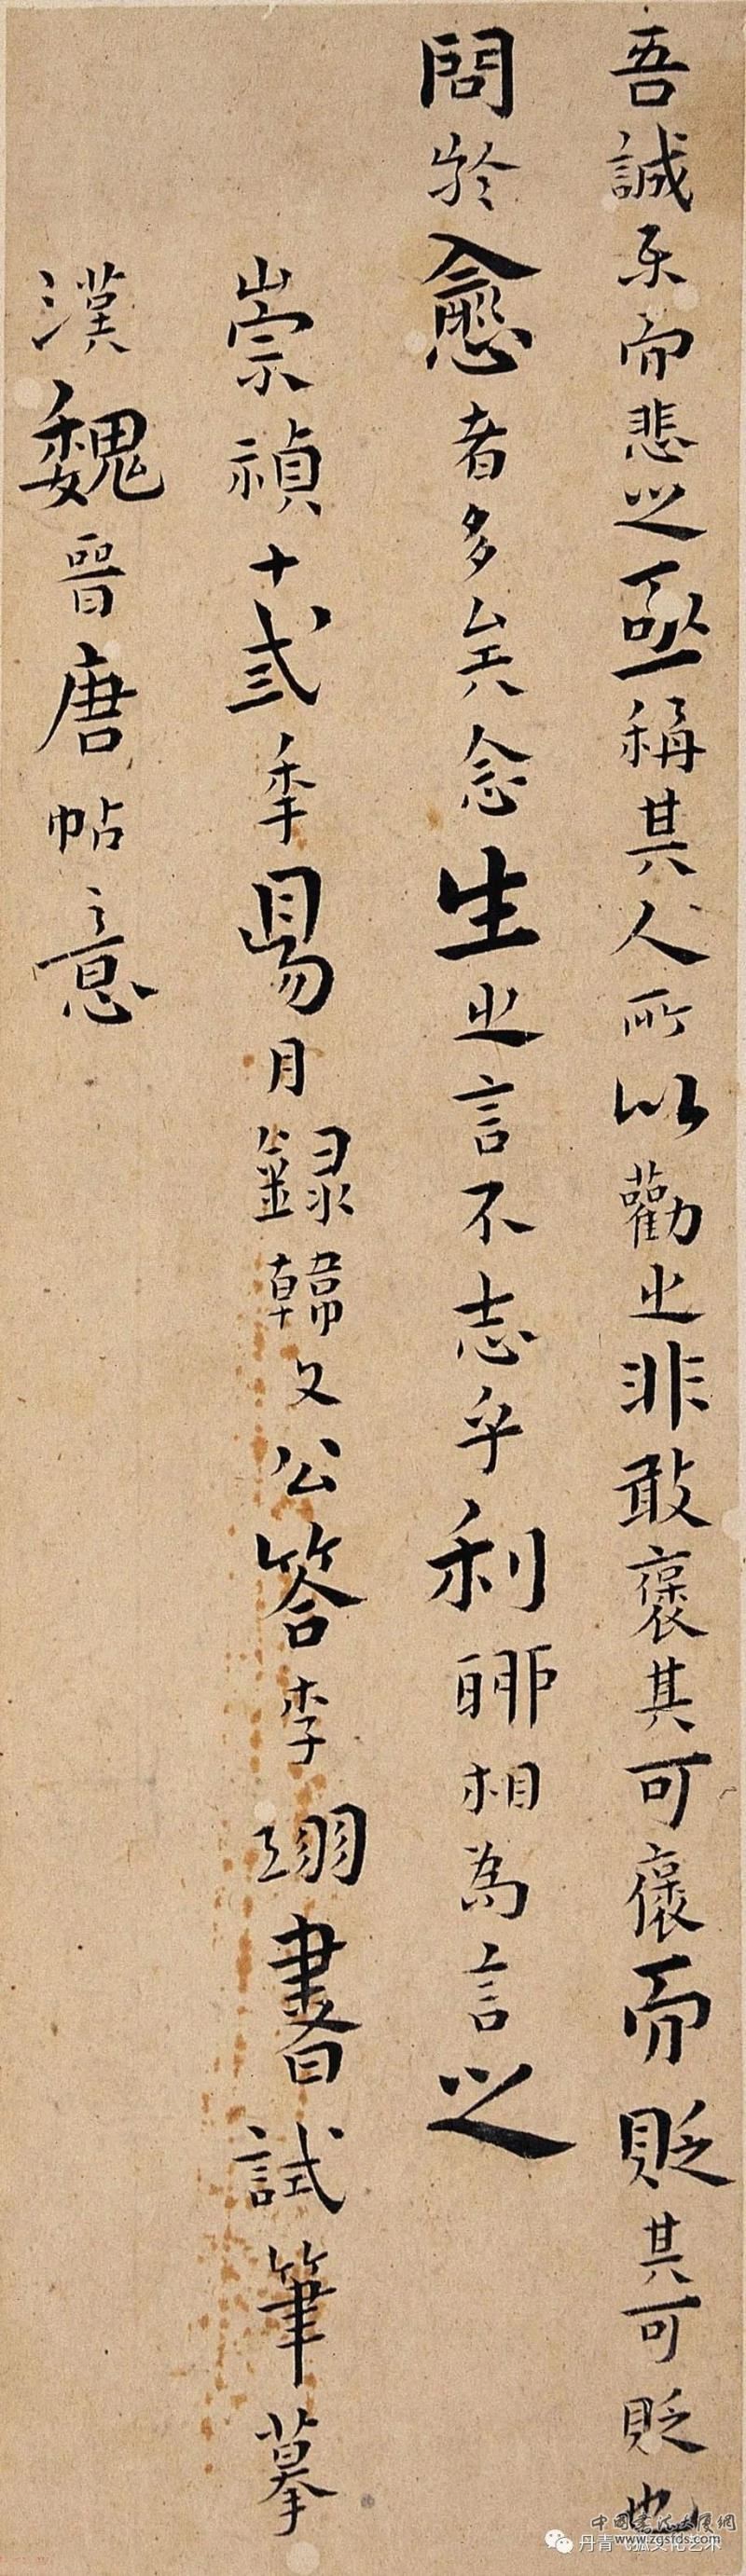 吾誠乐而悲之亟稱其人所以勸之非敢褒其可褒而貶其可貶也
問於愈者多矣念生之言不志乎利聊相為言之
崇禎十弍年㫑月錄韓文公答李翊書試筆摹
漢魏晉唐帖意
中國書法大厦網
www.zgsfds.com